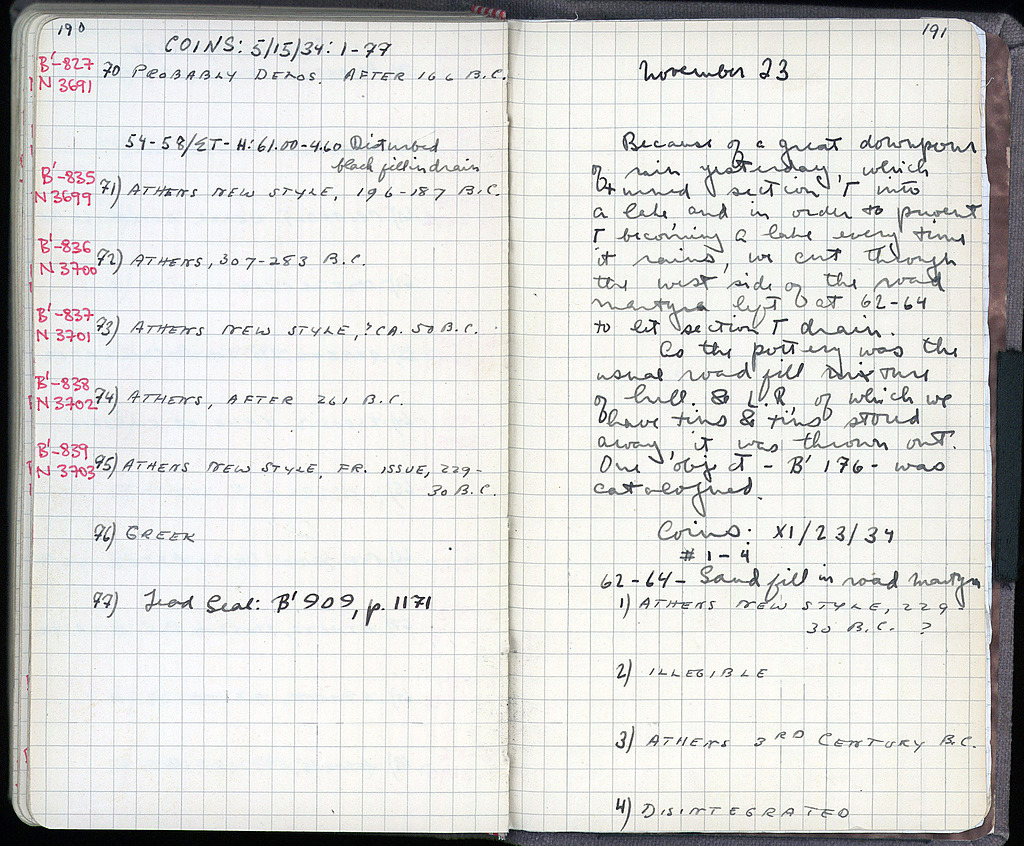 190
COINS: 5/15/34: 1-77
B'-827
N 3691
70 PROBABLY DELOS. AFTER 166 B.C.
54-58/ΣT-H: 61.00-4.60 Disturbed
black fill in drain
B'-835
N 3699
71) ATHENS NEW STYLE, 196-187 B.C.
B'-836
N 3700
72) ATHENS, 307-283 B.C.
B'-837
N 3701
73) ATHENS NEW STYLE, ? CA. 50 B.C.
B'-838
N 3702
74) ATHENS, AFTER 261 B.C.
B'-839
N 3703
75) ATHENS NEW STYLE, FR. ISSUE, 229-
30 B.C.
76) GREEK
77) Lead Seal: B' 909, p. 1171
191
November 23
Because of a great downpour
of rain yesterday, which
turned section T into
a lake and in order to prevent
T becoming a lake every time
it rains, we cut through
the west side of the road
martyra left at 62-64
to let section T drain.
As the pottery was the
usual road fill mixture
of hell. & L.R. of which we
have tins & tins stored
away, it was thrown out.
One object - B' 176 - was
catalogued.
Coins: XI/23/34
# 1-4
62-64 - Sand fill in road martyra
1) ATHENS NEW STYLE, 229-
30 B.C. ?
2) ILLEGIBLE
3) ATHENS 3RD CENTURY B.C.
4) DISINTEGRATED